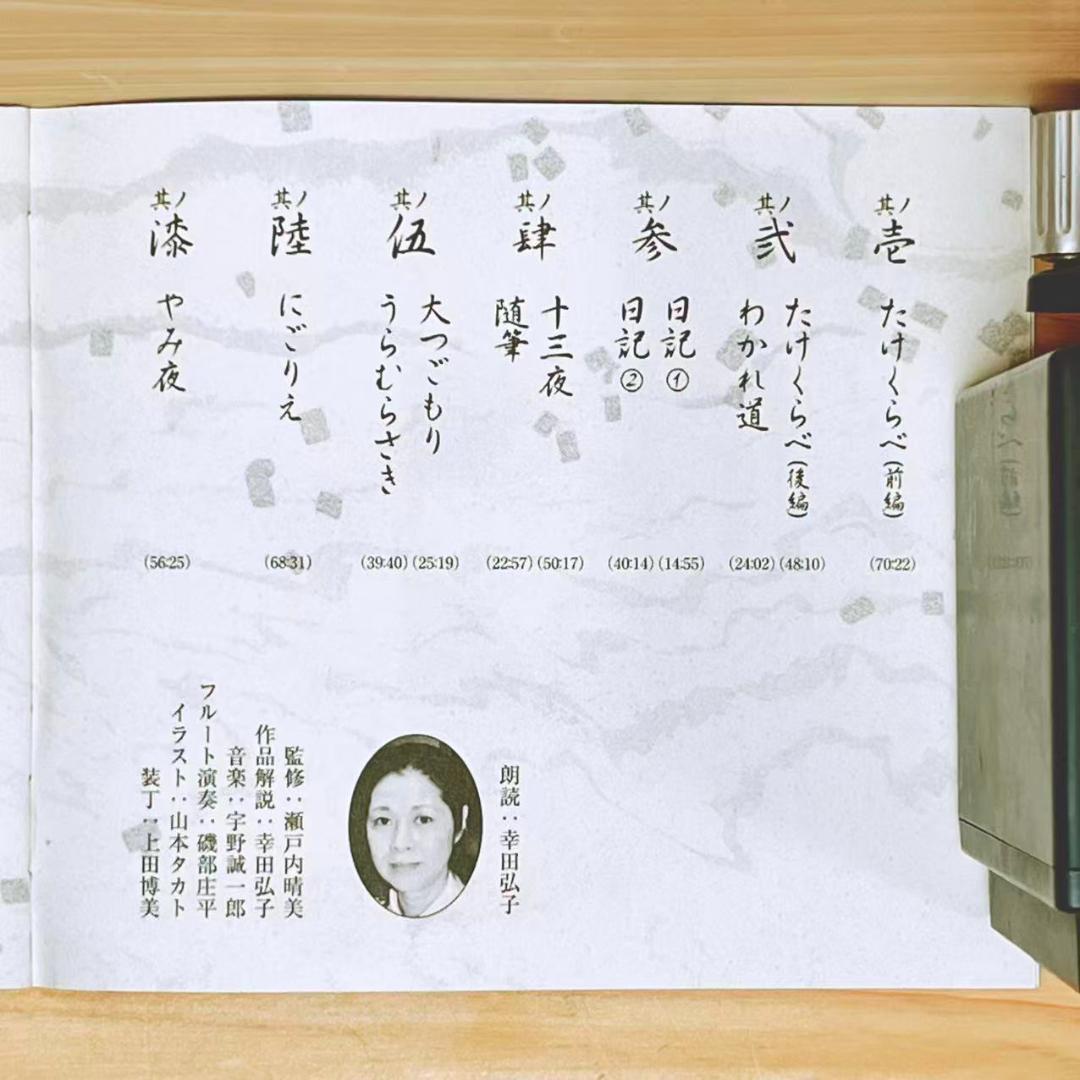 其ノ壱
たけくらべ(前編)
(70:22)
其ノ弐
たけくらべ(後編)
(48:10)
わかれ道
(24:02)
其ノ参
日記①
(14:55)
日記②
(40:14)
其ノ肆
十三夜
(50:17)
随筆
(22:57)
其ノ伍
大つごもり
(25:19)
うらむらさき
(39:40)
其ノ陸
にごりえ
(68:31)
其ノ漆
やみ夜
(56:25)
朗読：幸田弘子
監修：瀬戸内晴美
作品解説：幸田弘子
音楽：宇野誠一郎
フルート演奏：磯部庄平
イラスト：山本タカト
装丁：上田博美